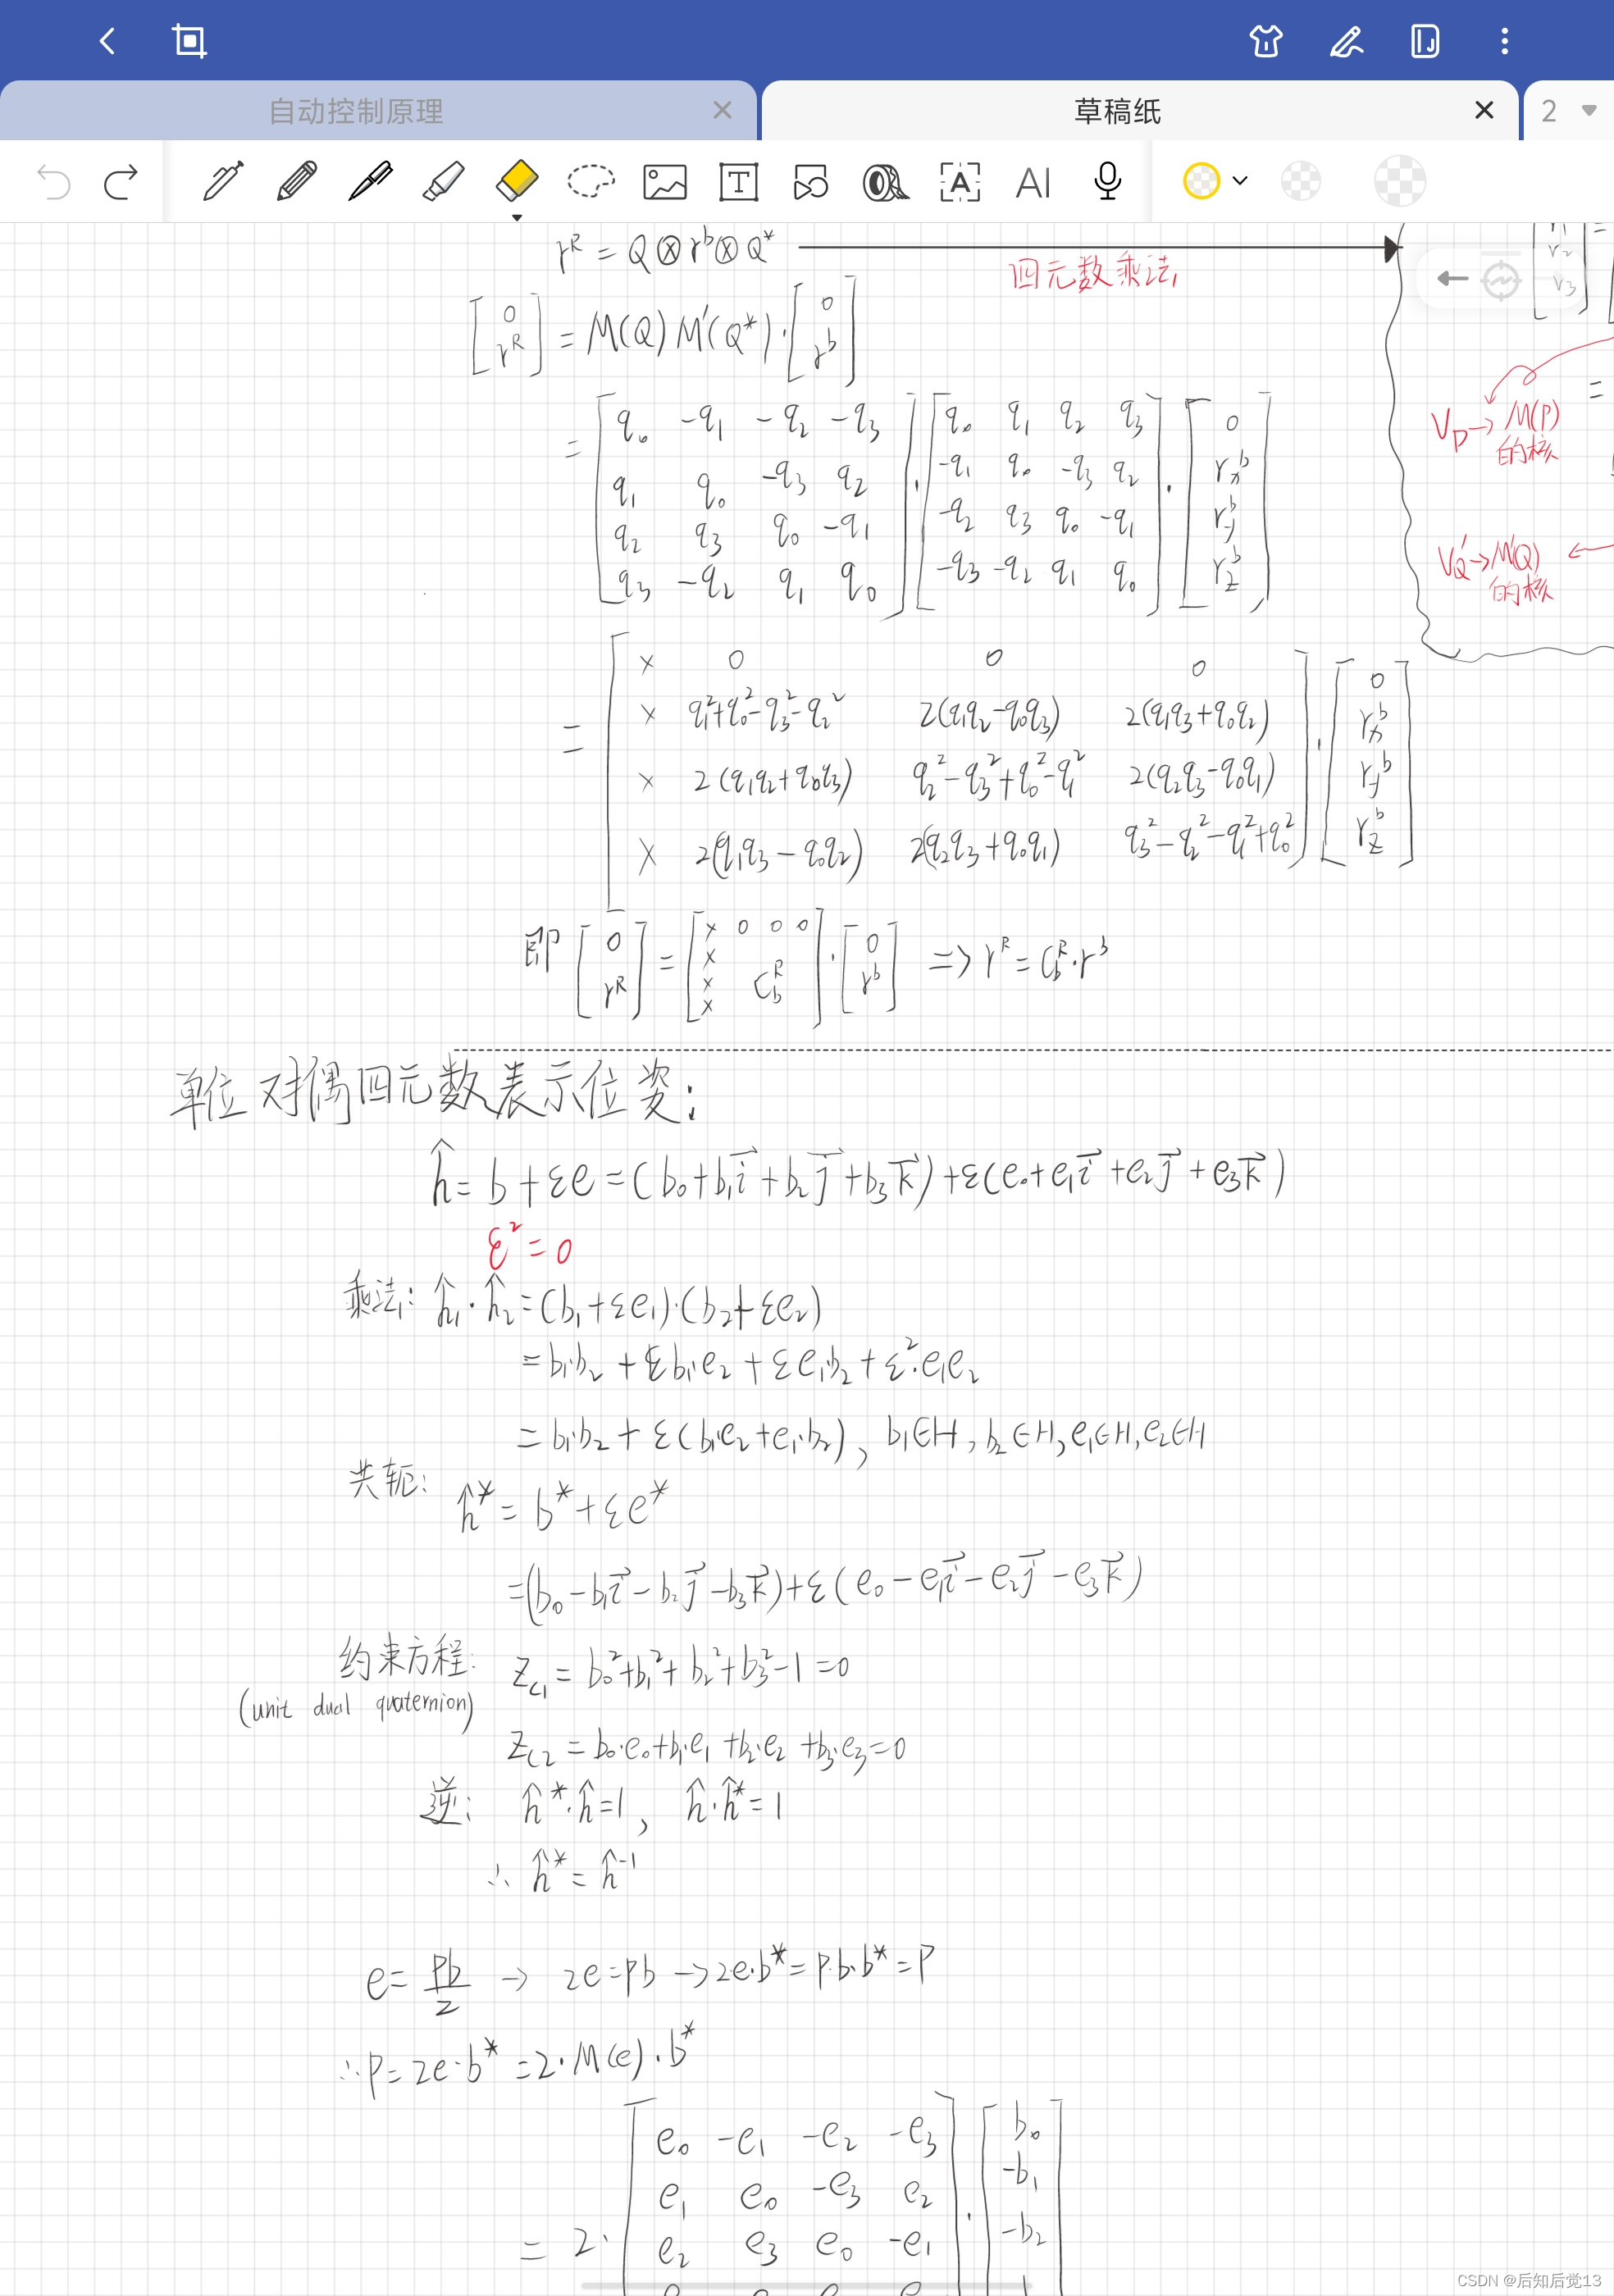 自动控制原理 × 草稿纸 × 2
T A AI
r^R = Q ⊗ r^b ⊗ Q^*
四元数乘法
[0; r^R] = M(Q) M'(Q^*) · [0; r^b]
= [q₀ -q₁ -q₂ -q₃; q₁ q₀ -q₃ q₂; q₂ q₃ q₀ -q₁; q₃ -q₂ q₁ q₀] · [q₀ q₁ q₂ q₃; -q₁ q₀ -q₃ q₂; -q₂ q₃ q₀ -q₁; -q₃ -q₂ q₁ q₀] · [0; r_x^b; r_y^b; r_z^b]
r₂
r₃
=
V_P → M(P)
的核
V'_Q → M'(Q)
的核
= [× 0 0 0; × q₁²+q₀²-q₃²-q₂² 2(q₁q₂-q₀q₃) 2(q₁q₃+q₀q₂); × 2(q₁q₂+q₀q₃) q₂²-q₃²+q₀²-q₁² 2(q₂q₃-q₀q₁); × 2(q₁q₃-q₀q₂) 2(q₂q₃+q₀q₁) q₃²-q₂²-q₁²+q₀²] · [0; r_x^b; r_y^b; r_z^b]
即 [0; r^R] = [× 0 0 0; × ; × C_b^R; ×] · [0; r^b] => r^R = C_b^R · r^b
单位对偶四元数表示位姿:
ĥ = b + εe = (b₀+b₁i⃗+b₂j⃗+b₃k⃗) + ε(e₀+e₁i⃗+e₂j⃗+e₃k⃗)
ε² = 0
乘法: ĥ₁·ĥ₂ = (b₁+εe₁)·(b₂+εe₂)
= b₁·b₂ + εb₁·e₂ + εe₁·b₂ + ε²·e₁e₂
= b₁·b₂ + ε(b₁·e₂+e₁·b₂), b₁∈H, b₂∈H, e₁∈H, e₂∈H
共轭: ĥ^* = b^* + εe^*
= (b₀-b₁i⃗-b₂j⃗-b₃k⃗) + ε(e₀-e₁i⃗-e₂j⃗-e₃k⃗)
约束方程: Z_C1 = b₀²+b₁²+b₂²+b₃²-1=0
(unit dual quaternion)
Z_C2 = b₀·e₀+b₁·e₁+b₂·e₂+b₃·e₃=0
逆: ĥ^*·ĥ=1, ĥ·ĥ^*=1
∴ ĥ^* = ĥ^-1
e = pb/2 → 2e=pb → 2e·b^*=p·b·b^*=p
∴ p=2e·b^* = 2·M(e)·b^*
= 2·[e₀ -e₁ -e₂ -e₃; e₁ e₀ -e₃ e₂; e₂ e₃ e₀ -e₁] · [b₀; -b₁; -b₂]
CSDN @后知后觉13